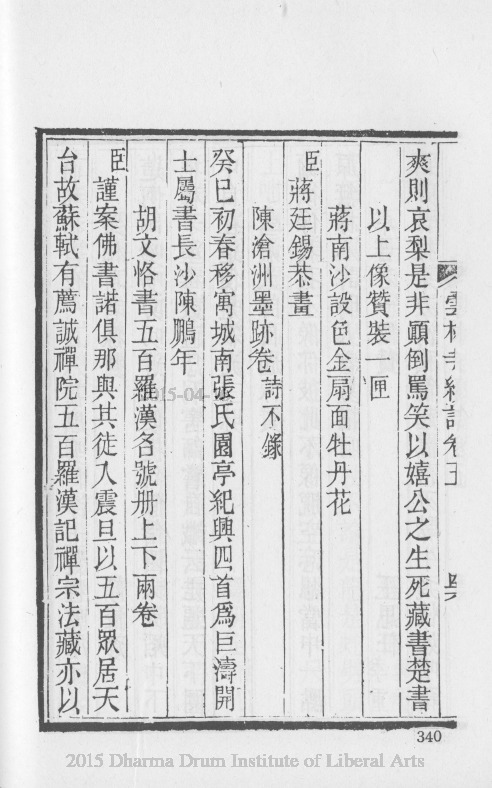 爽則哀梨是非顛倒罵笑以嬉公之生死藏書楚書
以上像贊裝一匣
蔣南沙設色金扇面牡丹花
臣蔣廷錫恭畫
陳滄洲墨跡卷詩不錄
癸巳初春移寓城南張氏園亭紀興四首爲巨濤開
士屬書長沙陳鵬年
胡文恪書五百羅漢名號册上下兩卷
臣謹案佛書諾俱那與其徒入震旦以五百眾居天
台故蘇軾有薦誠禪院五百羅漢記禪宗法藏亦以
340
2015 Dharma Drum Institute of Liberal Arts